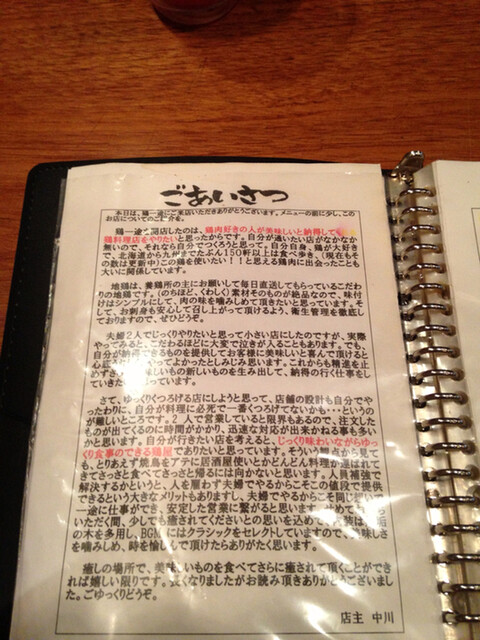 ごあいさつ
本日は、鶏一途にご来店いただきありがとうございます。メニューの前に少し、この
お店についてのご 介を。
鶏一途 開店したのは、鶏肉好きの人が美味しいと納得して
鶏料理店をやりたいと思ったからです。自分が通いたい店がなかなか
無いので、それなら自分でつくろうと思って。自分自身、鶏が大好き
で、北海道から九州までたぶん150軒以上は食べ歩き、(現在もそ
の数は更新中)この鶏を使いたい！！と思える鶏肉に出会ったことも
大いに関係しています。
地鶏は、養鶏所の主にお願いして毎日直送してもらっているこだわ
りの地鶏です。(のちほど、くわしく)素材そのものが絶品なので、味付
けはシンプルにして、肉の味を噛みしめて頂きたいと思っています。そ
して、お刺身も安心して召し上がって頂けるよう、衛生管理を徹底し
ておりますので、ぜひどうぞ。
夫婦2人でじっくりやりたいと思って小さい店にしたのですが、実際
やってみると、こだわるほどに大変で泣きが入ることもあります。でも、
自分が納得できるものを提供してお客様に美味しいと喜んで頂けると
心底 よかったとしみじみ思います。これからも精進を止
めずさ 味しいもの新しいものを生み出して、納得の行く仕事をし
ていきた 思っています。
さて、ゆっくりくつろげる店にしようと思って、店舗の設計も自分でや
ったわりに、自分が料理に必死で一番くつろげてないかも・・・というの
が難しいところです。2人で営業していると限界もあるので、注文した
ものが出てくるのに時間がかかり、迅速な対応が出来かねる事も多い
かと思います。自分が行きたい店を考えると、じっくり味わいながらゆっ
くり食事のできる鶏屋でありたいと思っています。そういう 点から見て
も、とりあえず焼鳥をアテに居酒屋使いとかどんどん料理が運ばれて
きてさっさと食べてさっさと帰るには向かないと思います。人員補強で
解決するかというと、人を雇わず夫婦でやるからこそこの値段で提供
できるという大きなメリットもありますし、夫婦でやるからこそ同じ想いで
一途に仕事ができ、安定した営業に繋がると思います。
いただく間、少しでも癒されてくださいとの思いを込めて、
の木を多用し、BGM にはクラシックをセレクトしていますので、美味しさ
を噛みしめ、時を愉しんで頂けたらありがたく思います。
癒しの場所で、美味しいものを食べてさらに癒されて頂くことができ
れば嬉しい限りです。長くなりましたがお読み頂きありがとうございまし
た。ごゆっくりどうぞ。
店主 中川